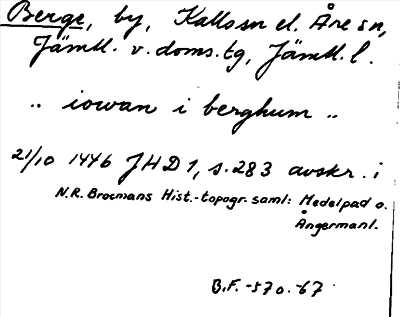 Berge, by, Kallssn el. Åre sn,
Jämtl. v. doms. tg, Jämtl. l.
.. iowan i berghum ..
21/10 1446 JHD 1, s. 283 avskr. i
N.R. Brocmans Hist.-topogr. saml: Medelpad o.
Ångermanl.
B.F. -57 o. -67